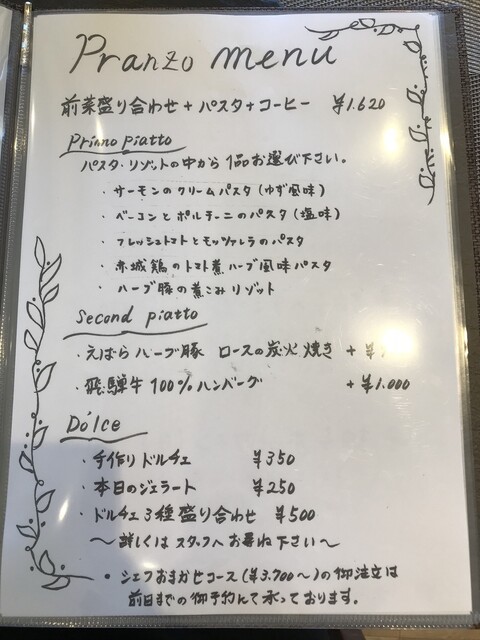 Pranzo menu
前菜盛り合わせ + パスタ + コーヒー ¥1.620
Primo piatto
パスタ・リゾットの中から 1品お選び下さい。
・サーモンのクリームパスタ (ゆず風味)
・ベーコンとポルチーニのパスタ (塩味)
・フレッシュトマトとモッツァレラのパスタ
・赤城鶏のトマト煮ハーブ風味パスタ
・ハーブ豚の煮こみリゾット
Second piatto
・えばらハーブ豚 ロースの炭火焼き + ¥
・飛騨牛100%ハンバーグ + ¥1.000
Dolce
・手作りドルチェ ¥350
・本日のジェラート ¥250
・ドルチェ3種盛り合わせ ¥500
〜詳しくはスタッフへお尋ね下さい〜
• シェフおまかせコース (¥3.700〜) の御注文は
前日までの御予約にて承っております。